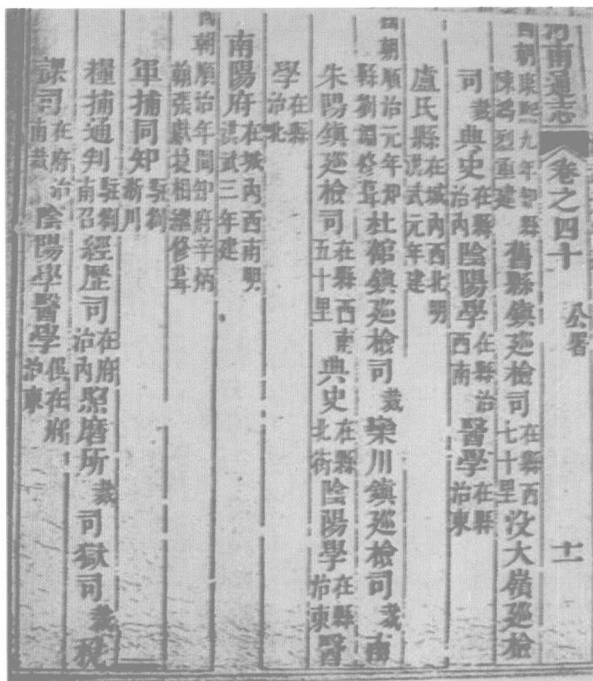 河南通志 卷之四十 公署 十一
國朝康熙九年知縣陳鴻烈重建 舊縣鎮廵檢司 在縣西七十里 没大嶺廵檢
司 裁 典史 在縣治内 陰陽學 在縣治西南 醫學 在縣治東
盧氏縣 在城内西北明洪武元年建
國朝順治元年知縣劉修葺 杜館鎮廵檢司 裁 欒川鎮廵檢司 裁 南
朱陽鎮廵檢司 在縣西南五十里 典史 在縣北街 陰陽學 在縣治東 醫
學 在縣治北
南陽府 在城内西南明洪武三年建
國朝順治年間知府辛炳翰張獻捷相繼修葺
軍捕同知 駐劄淅川
糧捕通判 駐劄南召 經歷司 在府治内 照磨所 裁 司獄司 裁 税
課司 在府治南裁 陰陽學醫學 俱在府治東